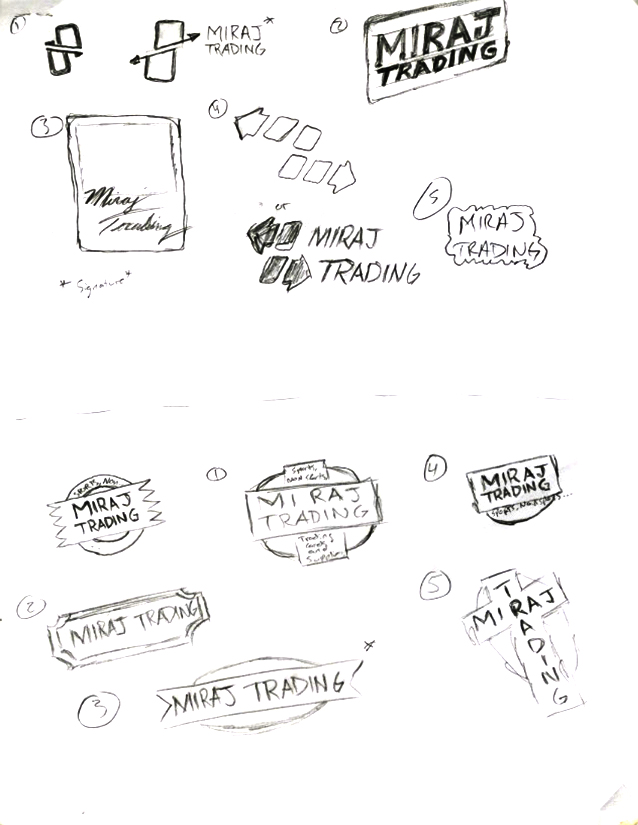 1
MIRAJ*
TRADING
2
MIRAJ
TRADING
3
Miraj
Trading
*Signature*
4
or
MIRAJ
TRADING
5
MIRAJ
TRADING
MIRAJ
TRADING
1
Sports
MIRAJ
TRADING
Trading
Cards
and
Supplies
4
MIRAJ
TRADING
2
MIRAJ TRADING
3
MIRAJ TRADING
*
5
MIRAJ
TRADING